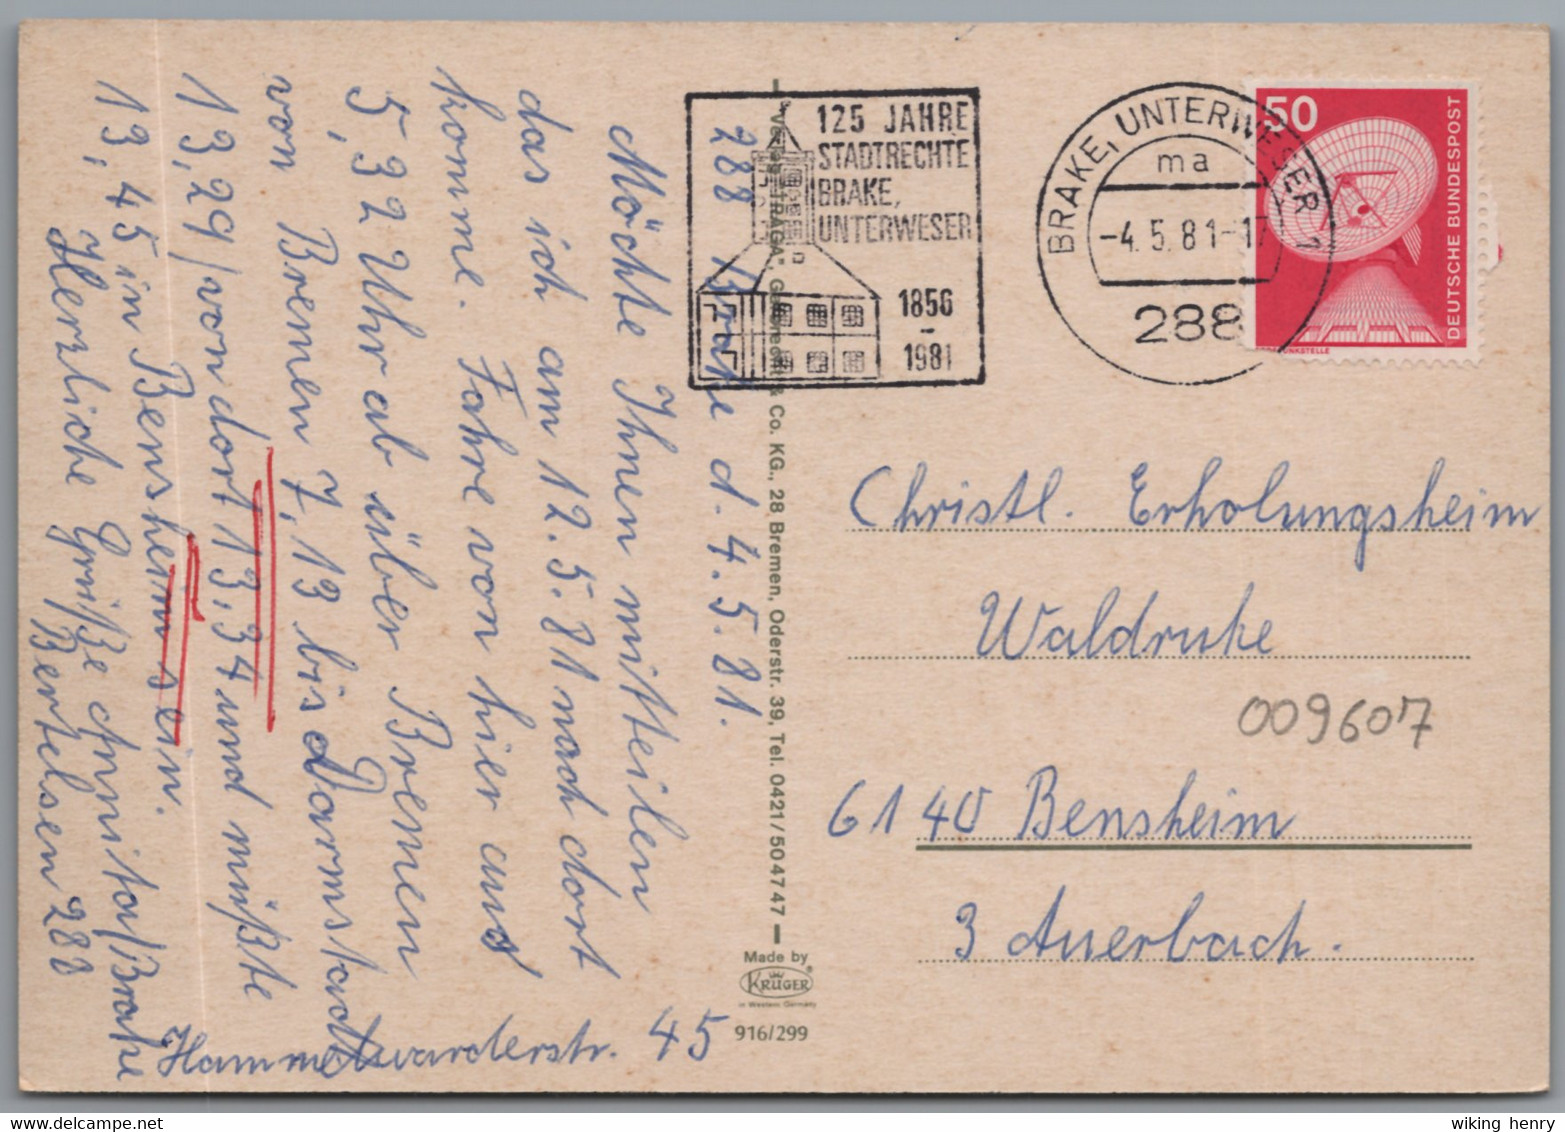 288 Brake d. 4.5.81.
Möchte Ihnen mitteilen
das ich am 12.5.81 nach dort
komme. Fahre von hier aus
5,32 Uhr ab über Bremen
von Bremen 7,13 bis Darmstadt
13,29/von dort 13,34 und müßte
13,45 in Bensheim sein.
Herzliche Grüße Annita/Brake
Bertelsen 288
Hammelwarderstr. 45
125 JAHRE
STADTRECHTE
BRAKE,
UNTERWESER
1856
-
1981
BRAKE, UNTERWESER 1
ma
-4.5.81-17
288
50
DEUTSCHE BUNDESPOST
Christl. Erholungsheim
Waldruhe
009607
6140 Bensheim
3 Auerbach.
& Co. KG., 28 Bremen, Oderstr. 39, Tel. 0421/504747
Made by
KRÜGER
in Western Germany
916/299
wiking henry